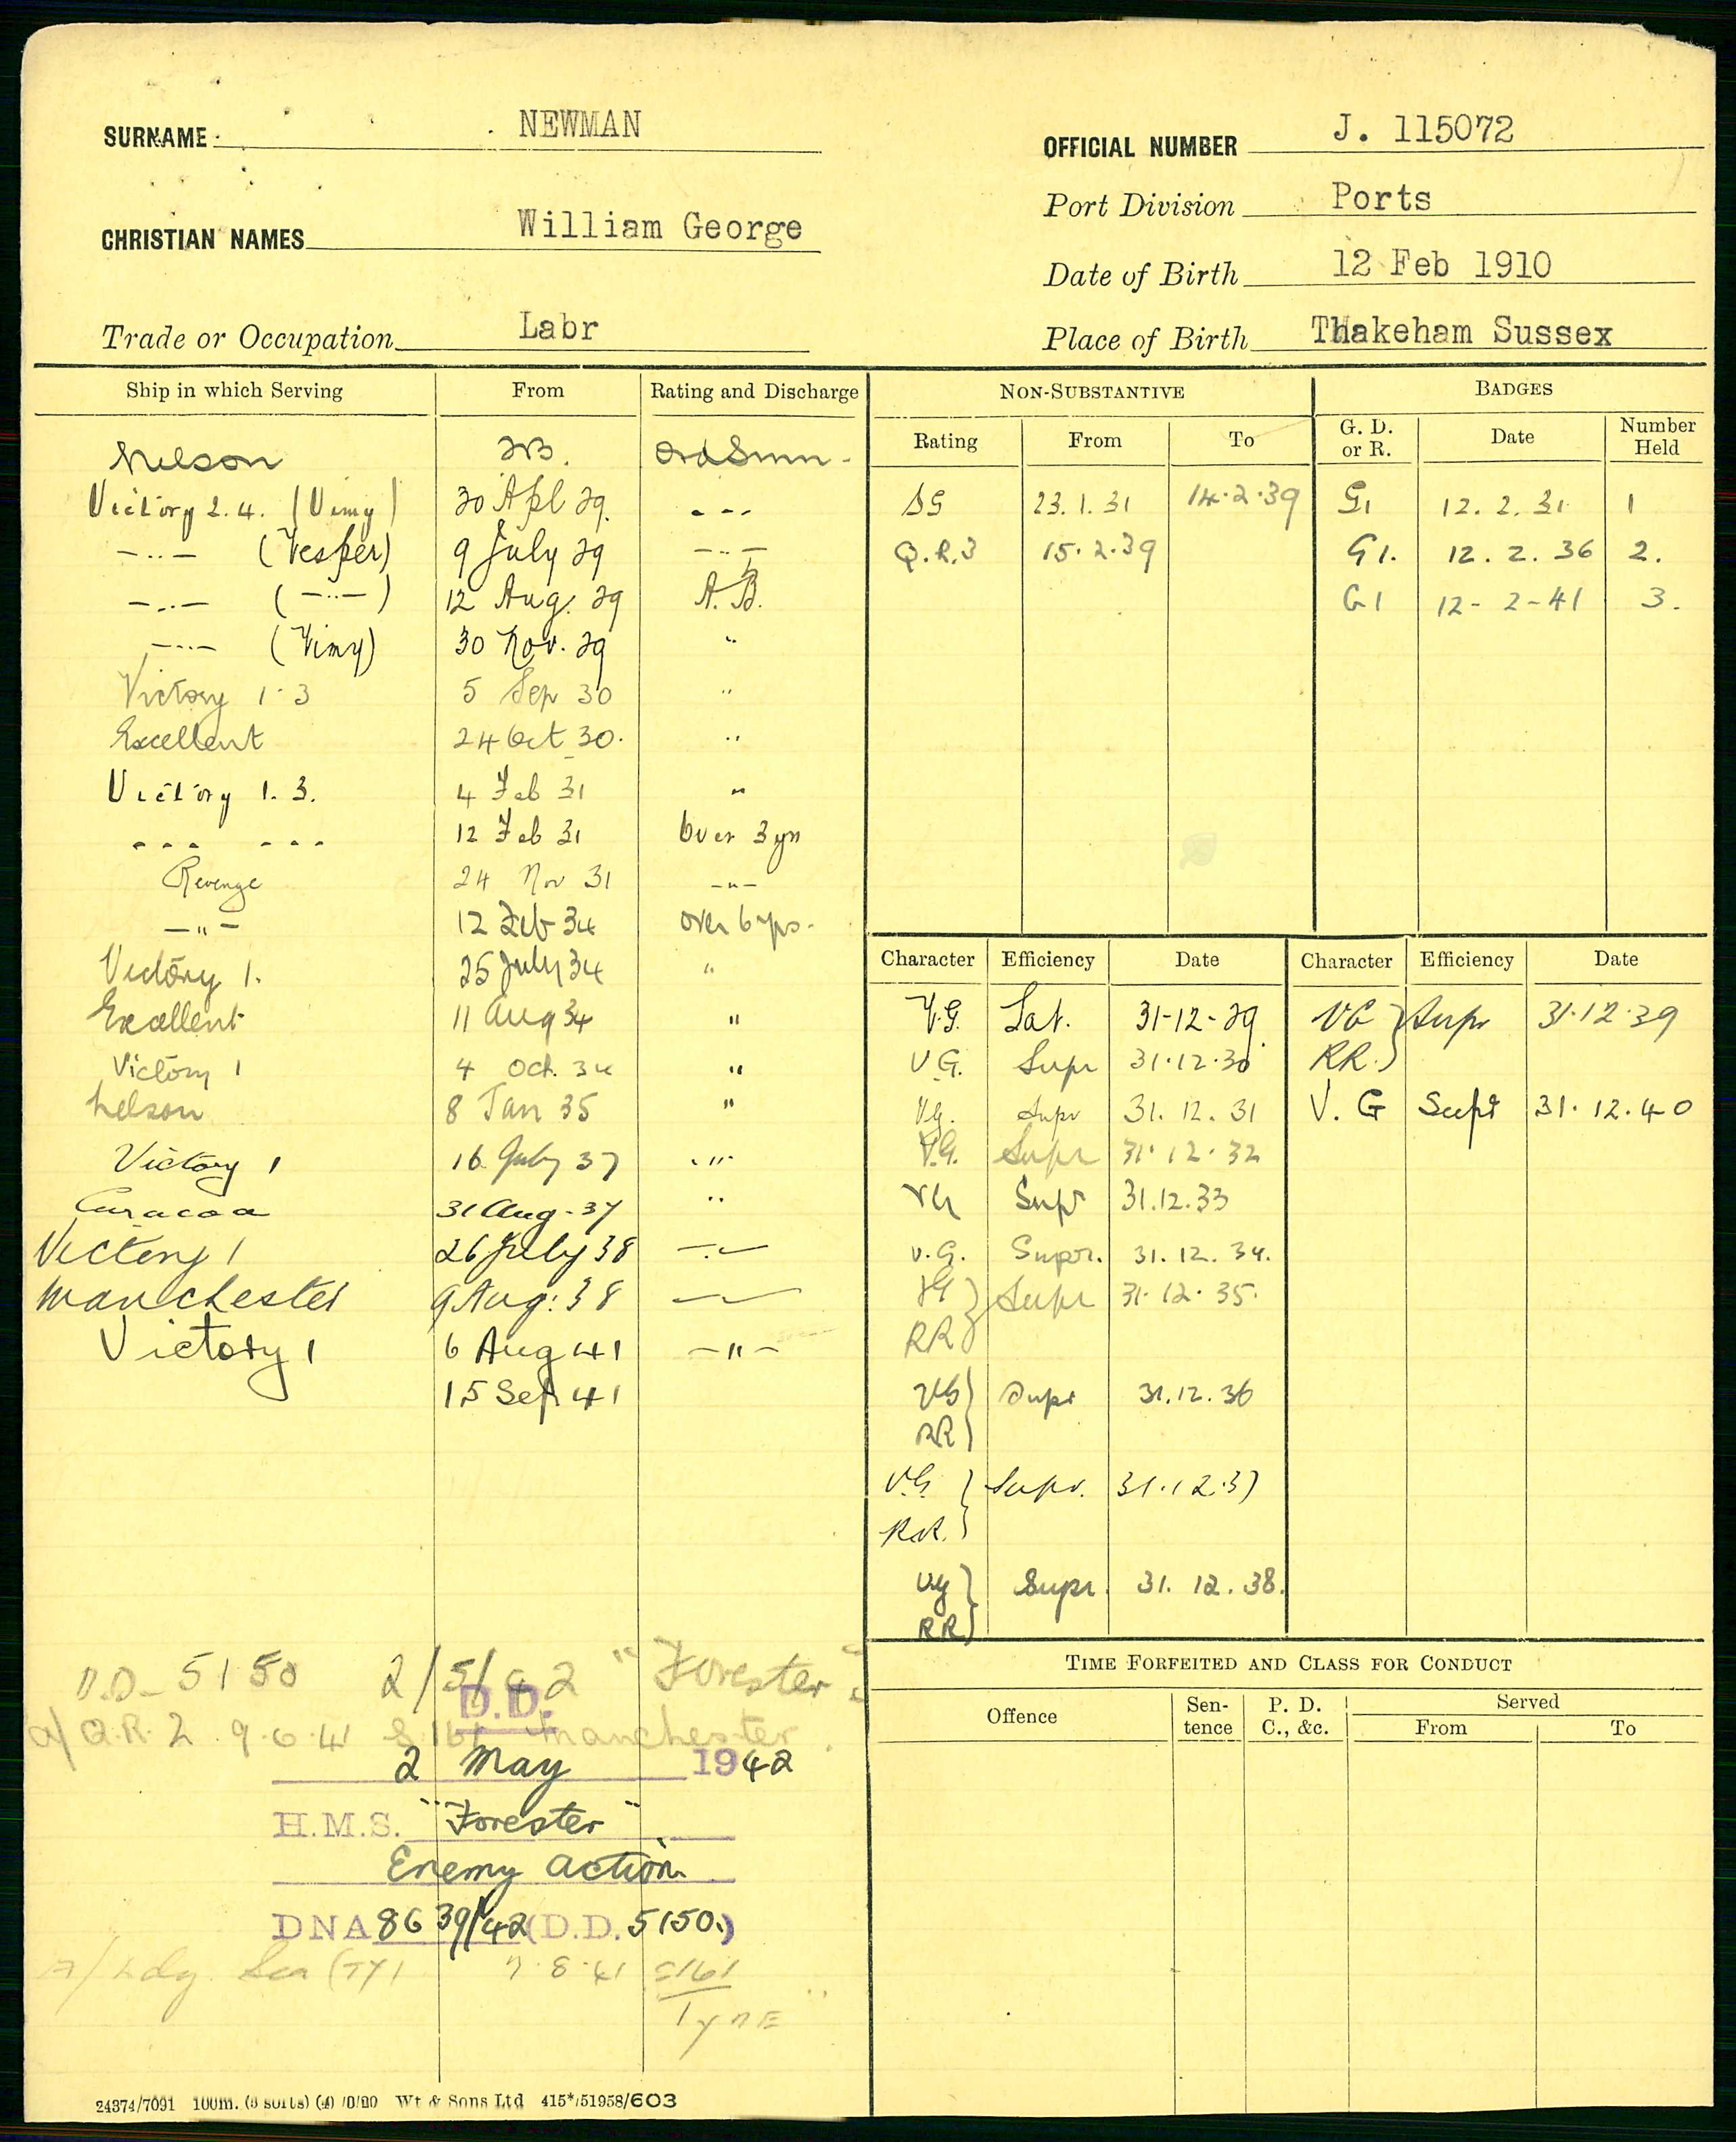 SURNAME NEWMAN
OFFICIAL NUMBER J. 115072
Port Division Ports
CHRISTIAN NAMES William George
Date of Birth 12 Feb 1910
Trade or Occupation Labr
Place of Birth Thakeham Sussex
Ship in which Serving From Rating and Discharge
Nelson OrdSmn.
Victory 2.4. (Vimy) 30 Apl 29. - - -
-..- (Vesper) 9 July 29 -..-
-..- (-..-) 12 Aug. 29 A.B.
-..- (Vimy) 30 Nov. 29 "
Victory 1.3 5 Sep 30 "
Excellent 24 Oct 30. "
Victory 1.3. 4 Feb 31 "
- - - - - - 12 Feb 31 over 3 yrs
Revenge 24 Nov 31 -"-
-"- 12 Feb 34 over 6 yrs.
Victory 1. 25 July 34 "
Excellent 11 Aug 34 "
Victory 1 4 Oct. 34 "
Nelson 8 Jan 35 "
Victory 1 16 July 37 "
Curacoa 31 Aug-37 "
Victory 1 26 July 38 -"-
Manchester 9 Aug: 38 -"-
Victory 1 6 Aug 41 -"-
15 Sep 41
NON-SUBSTANTIVE BADGES
Rating From To G. D. or R. Date Number Held
SG 23.1.31 14.2.39 G1 12.2.31 1
Q.R.3 15.2.39 G1. 12.2.36 2.
G1 12-2-41 3.
Character Efficiency Date Character Efficiency Date
V.G. Sat. 31-12-29 VG } Supr 31.12.39
V.G. Supr 31.12.30 RR. }
VG. Supr 31.12.31 V. G Supr 31.12.40
V.G. Supr 31.12.32
VG Supr 31.12.33
V.G. Supr. 31.12.34.
VG } Supr 31.12.35.
RR }
VG } Supr 31.12.36
RR }
V.G. } Supr. 31.12.37
R.R. }
VG } Supr. 31.12.38.
RR }
D.D. 5150 2/5/42 "Forester"
A/Q.R.2 9.6.41 S.161 Manchester.
D.D.
2 May 1942
H.M.S. "Forester"
Enemy action
DNA 8639/42 (D.D. 5150.)
A/Ldg. Sea (TY) 7.8.41 S161
Tyne
TIME FORFEITED AND CLASS FOR CONDUCT
Offence Sentence P. D. C., &c. Served From To
24374/7091 100m. Wt & Sons Ltd 415*/51958/603